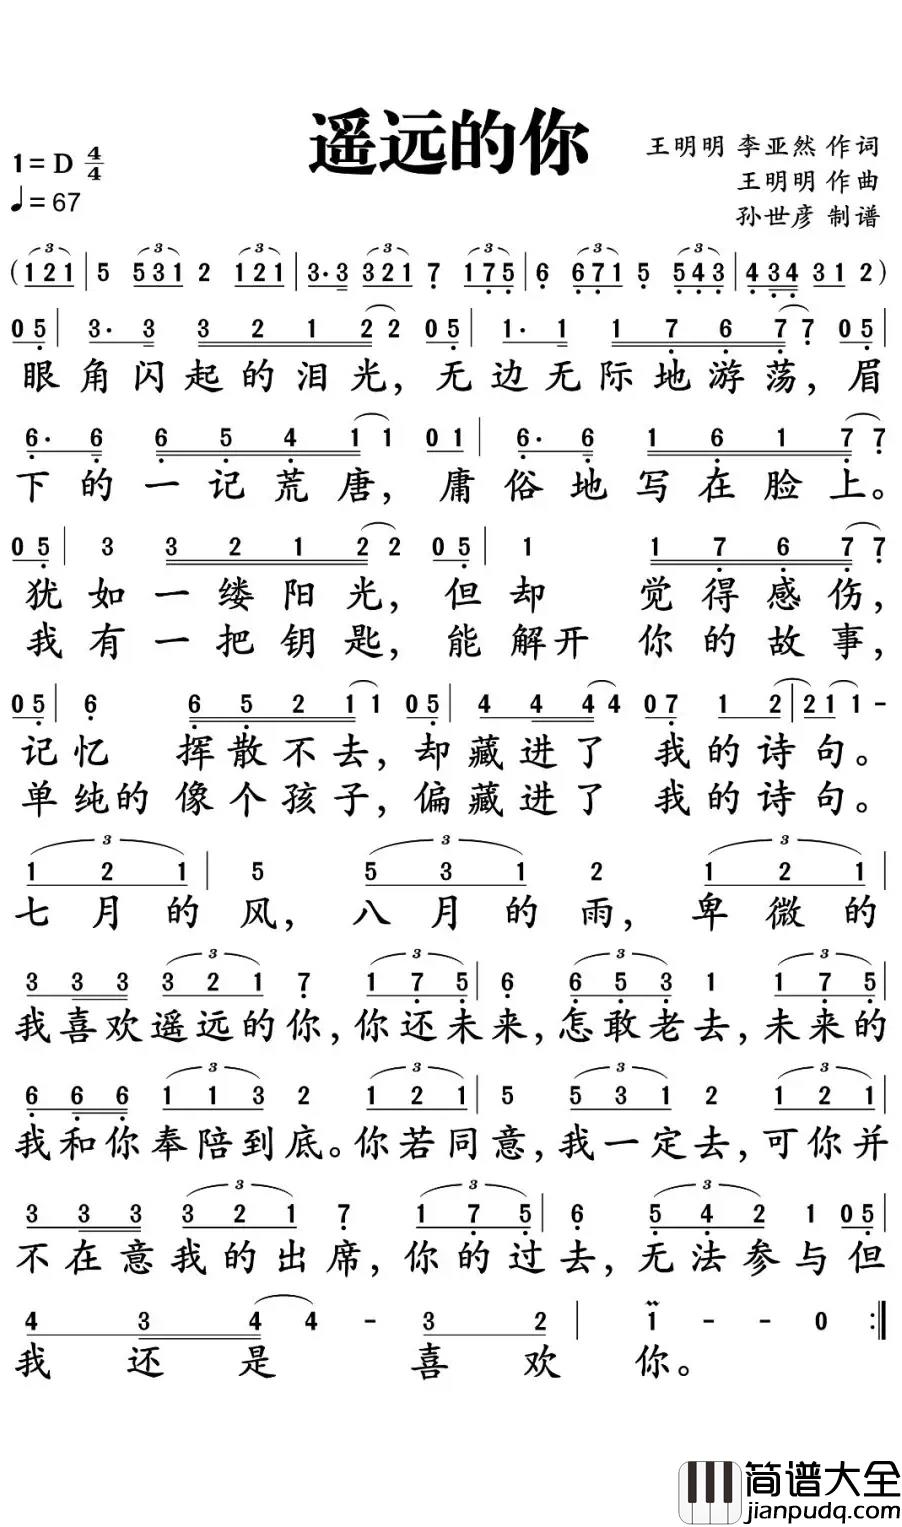 遥远的你
1=D 4/4
♩=67
王明明 李亚然 作词
王明明 作曲
孙世彦 制谱
(121 | 5 531 2 121 | 3·3 321 7 175 | 6 671 5 543 | 434 312)
05 | 3· 3 3 2 1 2 2 05 | 1· 1 1 7 6 7 7 05 |
眼角闪起的泪光，无边无际地游荡，眉
6· 6 6 5 4 1 1 01 | 6· 6 1 6 1 7 7
下的一记荒唐，庸俗地写在脸上。
05 | 3 3 2 1 2 2 05 | 1 1 7 6 7 7
犹如一缕阳光，但却 觉得感伤，
我有一把钥匙，能解开 你的故事，
05 | 6 6 5 2 1 1 05 | 4 4 4 4 07 1 2 | 2 1 1 -
记忆 挥散不去，却藏进了 我的诗句。
单纯的 像个孩子，偏藏进了 我的诗句。
1 2 1 | 5 5 3 1 2 1 2 1 |
七月的风，八月的雨，卑微的
3 3 3 3 2 1 7 1 7 5 | 6 6 5 3 1 1 7 5 |
我喜欢遥远的你，你还未来，怎敢老去，未来的
6 6 6 1 1 3 2 1 2 1 | 5 5 3 1 2 1 2 1 |
我和你奉陪到底。你若同意，我一定去，可你并
3 3 3 3 2 1 7 1 7 5 | 6 5 4 2 1 05 |
不在意我的出席，你的过去，无法参与但
4 3 4 4 - 3 2 | 1 - - 0 :|
我还是喜欢你。
简谱大全
jianpudq.com